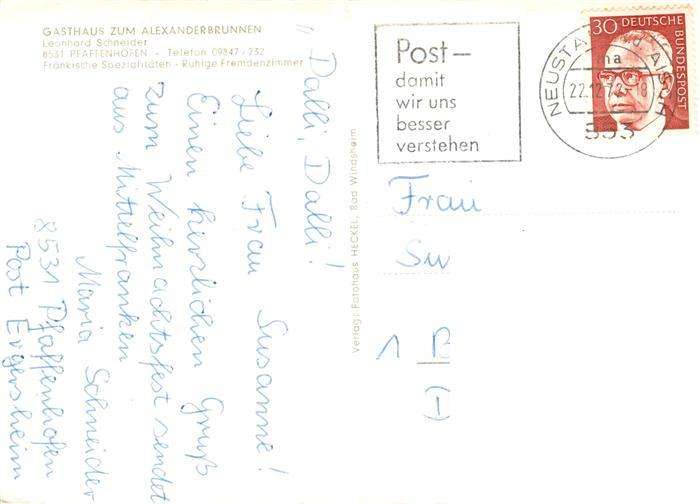 GASTHAUS ZUM ALEXANDERBRUNNEN
Leonhard Schneider
8531 PFAFFENHOFEN - Telefon 09847 - 232
Fränkische Spezialitäten - Ruhige Fremdenzimmer
"Dalli, Dalli!
Liebe Frau Susanne!
Einen herzlichen Gruß
zum Weihnachtsfest sendet
aus Mittelfranken
Maria Schneider
8531 Pfaffenhofen
Post Ergersheim
Verlag: Fotohaus HECKEL, Bad Windsheim
Post—
damit
wir uns
besser
verstehen
NEUSTADT AISCH
na
22.12.72-18
8533
30 DEUTSCHE
BUNDESPOST
Frau
Sw
1 B
(